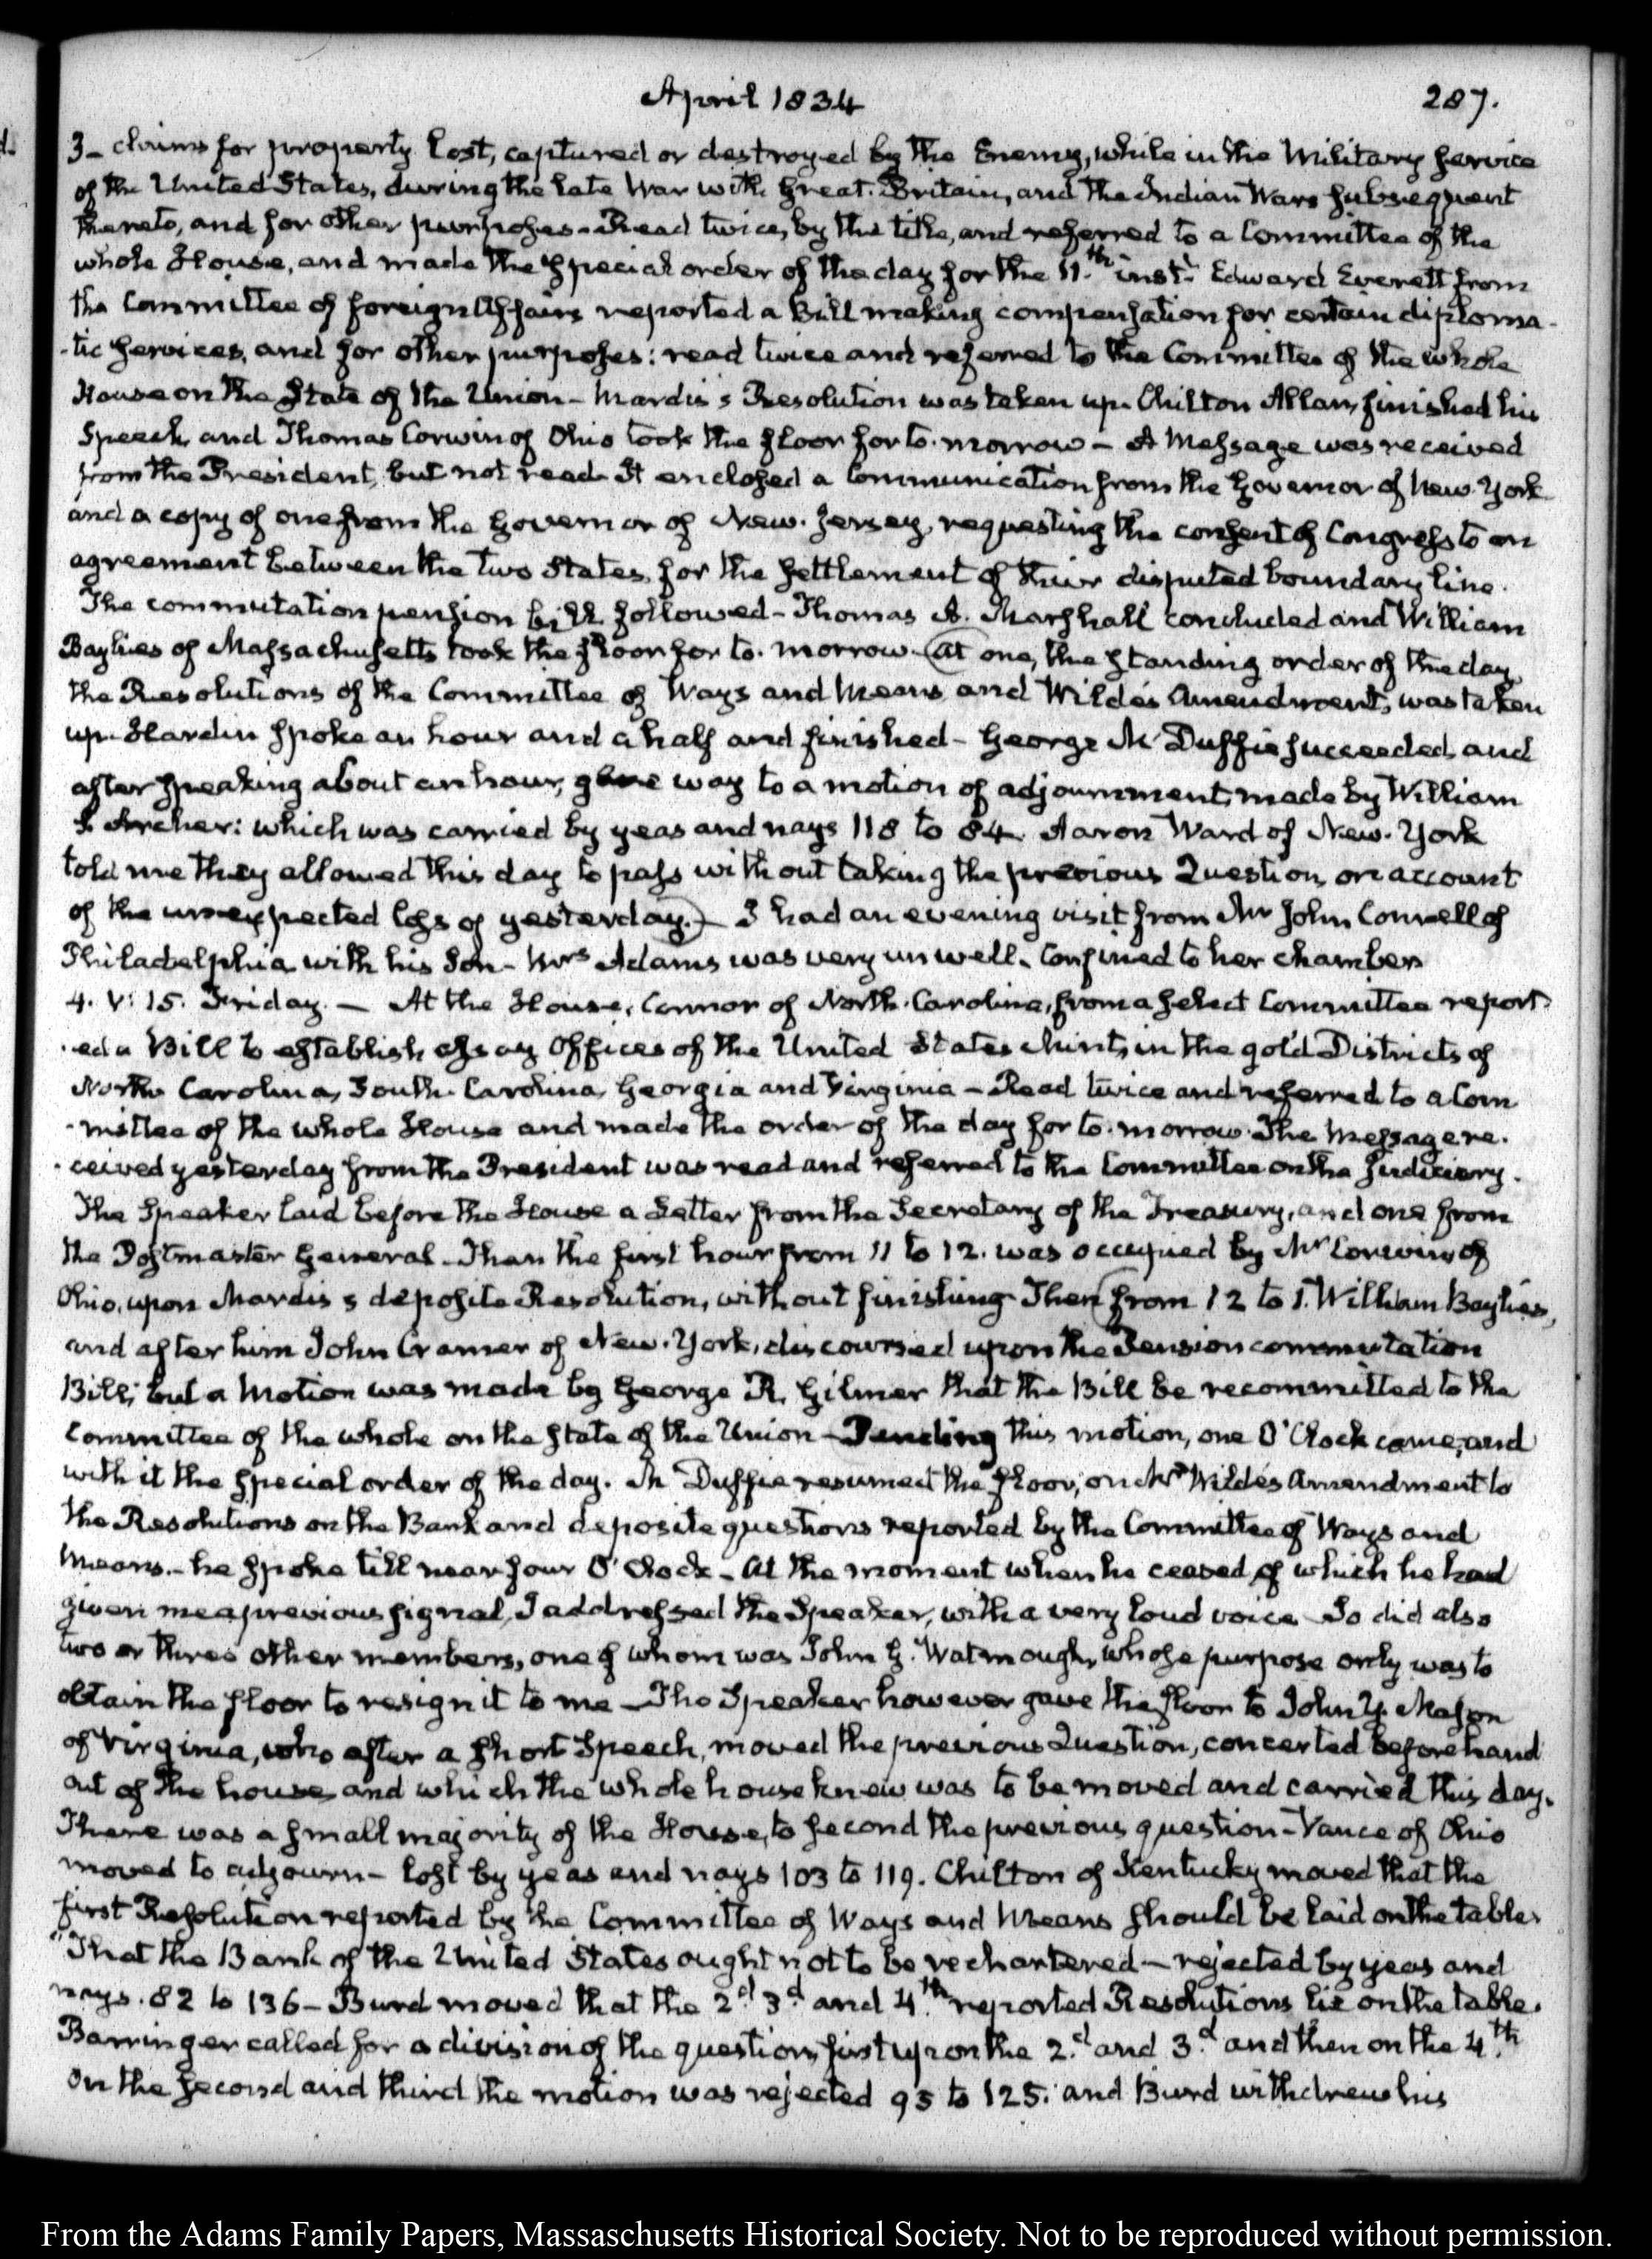 April 1834
287.
3- claims for property lost, captured or destroyed by the Enemy, while in the Military service
of the United States, during the late War with Great-Britain, and the Indian Wars subsequent
thereto, and for other purposes. Read twice, by the title, and referred to a Committee of the
whole House, and made the special order of the day for the 11.th inst.t Edward Everett from
the Committee of foreign Affairs reported a Bill making compensation for certain diploma-
-tic services, and for other purposes: read twice and referred to the Committee of the whole
House on the State of the Union - Mardis's Resolution was taken up. Chilton Allan, finished his
Speech, and Thomas Corwin of Ohio took the floor for to-morrow - A Message was received
from the President, but not read. It enclosed a Communication from the Governor of New-York
and a copy of one from the Governor of New-Jersey, requesting the consent of Congress to an
agreement between the two States, for the settlement of their disputed boundary line.
The commutation pension bill followed - Thomas A. Marshall concluded and William
Baylies of Massachusetts took the floor for to-morrow. At one, the standing order of the day,
the Resolutions of the Committee of Ways and Means and Wilde's Amendment, was taken
up. Hardin spoke an hour and a half and finished - George McDuffie succeeded, and
after speaking about an hour, gave way to a motion of adjournment, made by William
S. Archer: which was carried by yeas and nays 118 to 84. Aaron Ward of New-York
told me they allowed this day to pass without taking the previous Question, on account
of the unexpected loss of yesterday. - I had an evening visit from Mr John Connell of
Philadelphia with his Son - Mrs Adams was very unwell. Confined to her chamber.
4. V: 15. Friday. - At the House, Connor of North-Carolina, from a select Committee report-
-ed a Bill to establish assay Offices of the United States Mint, in the gold Districts of
North Carolina, South-Carolina, Georgia and Virginia - Read twice and referred to a Com
-mittee of the whole House and made the order of the day for to-morrow. The Message re-
-ceived yesterday from the President was read and referred to the Committee on the Judiciary.
The Speaker laid before the House a Letter from the Secretary of the Treasury, and one from
the Postmaster General. Then the first hour from 11 to 12. was occupied by Mr Corwin of
Ohio, upon Mardis's deposite Resolution, without finishing. Then from 12 to 1. William Baylies,
and after him John Cramer of New-York, discoursed upon the Pension commutation
Bill; but a Motion was made by George R. Gilmer that the Bill be recommitted to the
Committee of the whole on the state of the Union - Pending this motion, one O'Clock came, and
with it the special order of the day. McDuffie resumed the floor, on Mr Wilde's Amendment to
the Resolutions on the Bank and deposite questions reported by the Committee of Ways and
Means. - he spoke till near four O'Clock - At the moment when he ceased of which he had
given me a previous signal, I addressed the Speaker, with a very loud voice. So did also
two or three other members, one of whom was John G. Watmough, whose purpose only was to
obtain the floor to resign it to me - The Speaker however gave the floor to John Y. Mason
of Virginia, who after a short Speech, moved the previous Question, concerted beforehand
out of the house, and which the whole house knew was to be moved and carried this day.
There was a small majority of the House, to second the previous question - Vance of Ohio
moved to adjourn - lost by yeas and nays 103 to 119. Chilton of Kentucky moved that the
first Resolution reported by the Committee of Ways and Means should be laid on the table.
"That the Bank of the United States ought not to be rechartered - rejected by yeas and
nays. 82 to 136 - Burd moved that the 2.d 3.d and 4.th reported Resolutions lie on the table.
Barringer called for a division of the question, first upon the 2.d and 3.d and then on the 4.th
On the second and third the motion was rejected 95 to 125. and Burd withdrew his
From the Adams Family Papers, Massaschusetts Historical Society. Not to be reproduced without permission.